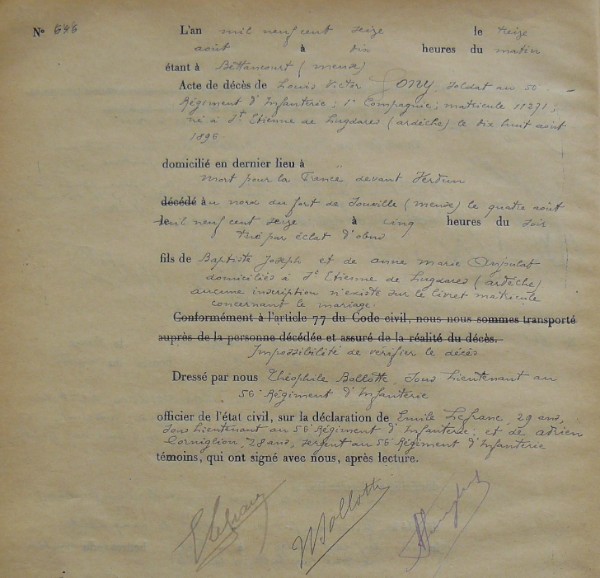 N° 696
L'an mil neuf cent seize le treize
août à dix heures du matin
étant à Bettancourt (meuse)
Acte de décès de Louis Victor Pony, soldat au 56
Régiment d'Infanterie; 1e Compagnie; matricule 11271;
né à St Etienne de Lugdarès (ardèche) le dix huit août
1896
domicilié en dernier lieu à
mort pour la France devant Verdun
décédé au nord du fort de Souville (meuse) le quatre août
le mil neuf cent seize à cinq heures du soir
tué par éclat d'obus
fils de Baptiste Joseph et de anne Marie
domiciliés à St Etienne de Lugdarès (ardèche)
aucune inscription n'existe sur le livret matricule
concernant le mariage.
Conformément à l'article 77 du Code civil, nous nous sommes transporté
auprès de la personne décédée et assuré de la réalité du décès.
Impossibilité de vérifier le décès
Dressé par nous Théophile Bollotte, Sous Lieutenant au
56e Régiment d'Infanterie
officier de l'état civil, sur la déclaration de Emile Lefranc, 29 ans,
sous Lieutenant au 56e Régiment d'Infanterie; et de adrien
Corniglion, 28 ans, sergent au 56e Régiment d'Infanterie
témoins, qui ont signé avec nous, après lecture.
Lefranc Bollotte